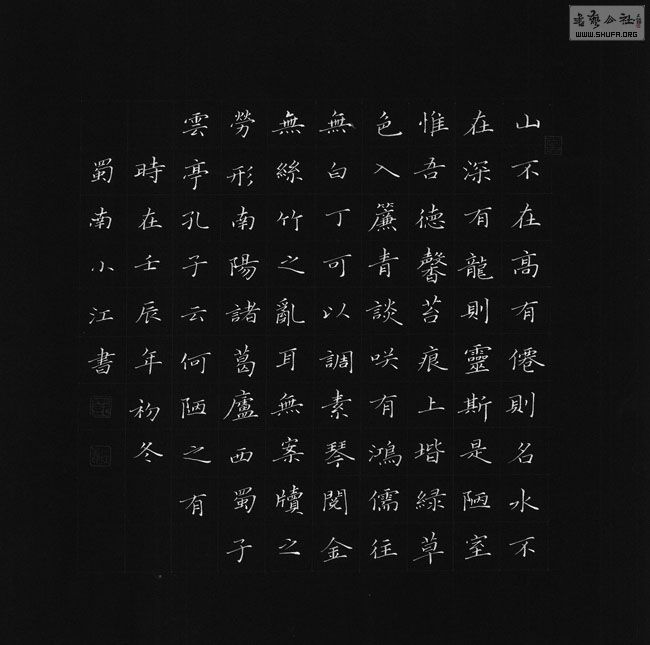 山不在高有僊則名水不
在深有龍則靈斯是陋室
惟吾德馨苔痕上堦緑草
色入簾青談咲有鴻儒往
無白丁可以調素琴閱金
無絲竹之亂耳無案牘之
勞形南陽諸葛廬西蜀子
雲亭孔子云何陋之有
時在壬辰年初冬
蜀南小江書
書藝公社
WWW.SHUFA.ORG